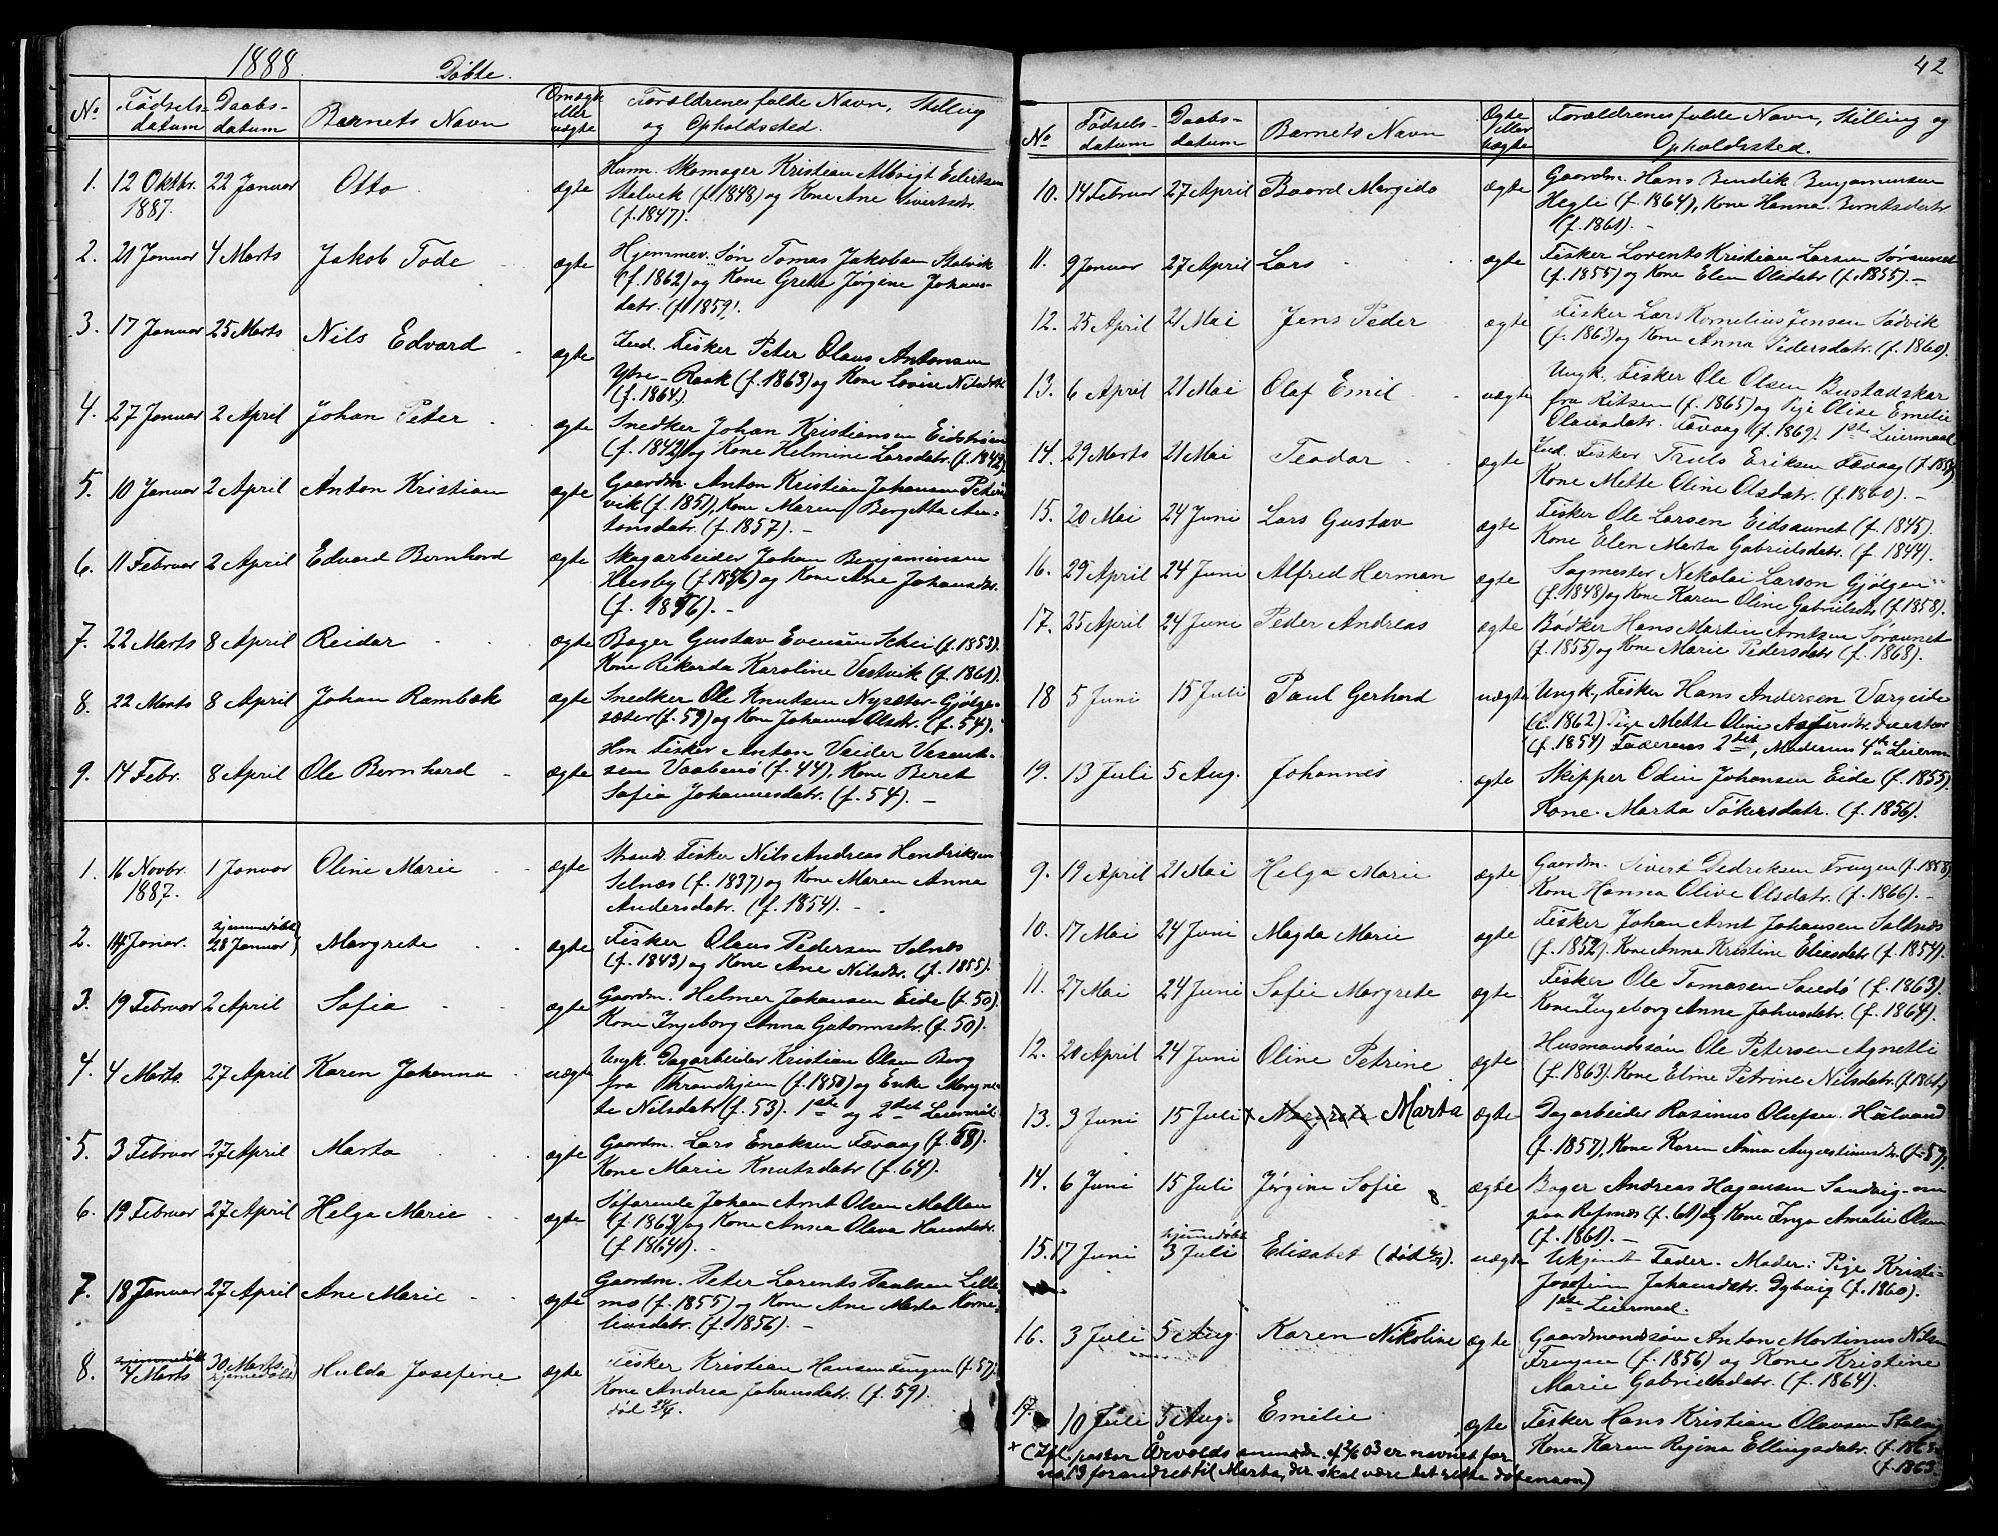 1888. Døbte.
No Fødselsdatum Daabsdatum Barnets Navn Om ægte eller uægte Forældrenes fulde Navn, Stilling og Opholdssted.
1. 12 Oktbr. 22 Januar Otto ægte Husm. Skomager Kristian Albrigt Eilertsen
1887. Stalvik (f. 1848) og Kone Ane Sivertsdtr.
(f. 1847).
2. 21 Januar 4 Marts Jakob Tode ægte Hjemmev. Søn Tomas Jakobsen Stalvik
(f. 1862) og Kone Grete Jørgine Johans-
datr. (f. 1859).
3. 17 Januar 25 Marts Nils Edvard ægte Ind. Fisker Peter Olaus Antonsen
Ytre-Raak (f. 1863) og Kone Lovise Nilsdtr
(f. 1864)
4. 27 Januar 2 April Johan Peter ægte Snedker Johan Kristiansen Eidstrøm
(f. 1842) og Kone Helmine Larsdatr. (f. 1842).
5. 10 Januar 2 April Anton Kristian ægte Gaardm. Anton Kristian Johansen
vik (f. 1851), Kone Maren Bergetta An-
tonsdatr. (f. 1857). –
6. 11 Februar 2 April Edvard Bernhard ægte Skogarbeider Johan Benjaminsen
(f. 1856) og Kone Ane Johansdtr.
(f. 1856). –
7. 22 Marts 8 April Reidar ægte Bager Gustav Evensen Schei (f. 1853).
Kone Rikarda Karoline Vestvik (f. 1861).
8. 22 Marts 8 April Johan Rambæk ægte Snedker Ole Knutsen Nysæter-Gjølge-
sæter (f. 59) og Kone Johanna Olsdtr. (f. 54).
9. 14 Febr. 8 April Ole Bernhard ægte Hm Fisker Anton Vaabenö (f. 44), Kone Beret
Sofia Johannesdatr. (f. 54). –
1. 16 Novbr. 1 Januar Oline Marie ægte Strands. Fisker Nils Andreas Hendriksen
1887. Selnæs (f. 1837) og Kone Maren Anna
Andersdatr. (f. 1854). –
2. 14 Januar. hjemmedøbt 28 Januar Margrete ægte Fisker Olaus Pedersen Selnæs
(f. 1843) og Kone Ane Nilsdtr. (f. 1855).
3. 19 Februar 2 April Sofia ægte Gaardm. Helmer Johansen Eide (f. 50).
Kone Ingeborg Anna (f. 50).
4. 4 Marts. 27 April Karen Johanna uægte Ungk. Dagarbeider Kristian Olsen Berg
fra Throndhjem (f. 1850) og Enke Margre-
te Nilsdatr (f. 53). 1ste og 2det Leiermål
5. 3 Februar 27 April Marta ægte Gaardm. Lars Enoksen Fævaag (f. 58).
Kone Marie Knutsdatr (f. 64).
6. 19 Februar 27 April Helga Marie ægte Søfarende Johan Arnt Olsen Mellan
(f. 1863) og Kone Anna Olava Hansdatr.
(f. 1864). –
7. 18 Januar 27 April Ane Marie ægte Gaardm. Peter Lorents Paulsen Lille-
mo (f. 1855) og Kone Ane Marta Korne-
liusdatr. (f. 1856). –
8. Marts 30 Marts hjemmedøbt Hulda Josefine ægte Fisker Kristian Hansen Frengen (f. 57).
Kone Andrea Johansdatr. (f. 59).
død
42
No Fødselsdatum Daabsdatum Barnets Navn Ægte eller uægte Forældrenes fulde Navn, Stilling og Opholdssted.
10. 14 Februar 27 April Baard Margido ægte Gaardm. Hans Bendik Benjaminsen
Hegle (f. 1864), Kone Hanna Berntsdatr
(f. 1861). –
11. 9 Januar 27 April Lars ægte Fisker Lorents Kristian Larsen Søraunet
(f. 1855) og Kone Elen Olsdatr (f. 1855). –
12. 25 April 21 Mai Jens Peder ægte Fisker Lars Kornelius Jensen Sødvik
(f. 1863) og Kone Anna Pedersdatr. (f. 1860).
13. 6 April 21 Mai Olaf Emil uægte Ungk. Fisker Ole Olsen Bustadskar
fra Ritsen (f. 1865) og Pige Olise Emelie
Olausdatr. Fævaag (f. 1869). 1ste Leiermaal
14. 29 Marts 21 Mai Teodor ægte Ind. Fisker Truls Eriksen Fævaag
Kone Mette Oline Olsdatr. (f. 1860). –
15. 20 Mai 24 Juni Lars Gustav ægte Fisker Ole Larsen Eidsaunet (f. 1845).
Kone Elen Marta Gabrielsdatr. (f. 1844).
16. 29 April 24 Juni Alfred Herman ægte Sagmester Nekolai Larsen Gjølgen
(f. 1848) og Kone Karen Oline Gabrielsdtr (f. 1858).
17. 25 April 24 Juni Peder Andreas ægte Bødker Hans Martin Arntsen Søraunet
(f. 1855) og Kone Marie Pedersdatr (f. 1868).
18 5 Juni 15 Juli Paul Gerhard uægte Ungk., Fisker Hans Andersen Vargeide
(f. 1862) Pige Mette Oline
(f. 1854) Faderens 2det, Moderens 4de Leierm
19. 13 Juli 5 Aug. Johannes ægte Skipper Odin Johansen Eide (f. 1855).
Kone Marta Tøkersdatr. (f. 1856).
9. 19 April 21 Mai Helga Marie ægte Gaardm. Sivert Dedriksen Frengen (f. 1858).
Kone Hanna Olive Olsdatr. (f. 1866). –
10. 17 Mai 24 Juni Magda Marie ægte Fisker Johan Arnt Johansen Saltnæs
(f. 1852). Kone Anna Kristine Eliasdatr (f. 1854).
11. 27 Mai 24 Juni Sofie Margrete ægte Fisker Ole Tomasen (f. 1863).
Kone Ingeborg Anne Johansdatr. (f. 1864).
12. 20 April 24 Juni Oline Petrine ægte Husmandssøn Ole Petersen Agnetli
(f. 1863). Kone Eline Petrine Nilsdatr. (f. 1861)
13. 3 Juni 15 Juli x Margrete Marta ægte Dagarbeider Rasmus Olufsen
(f. 1857), Kone Karen Anna Augustinusdtr (f. 57).
14. 6 Juni 15 Juli Jørgine Sofie ægte Bager Andreas Hagensen Sandvig
paa Refsnæs (f. 61) og Kone Inga Amalie Olsen
(f. 1861). –
15. 17 Juni hjemmedøbt 3 Juli Elisabet (død ) uægte Ukjendt Fader. Moder: Pige Kristi-
Josefine Johansdatr. Dybvig (f. 1860).
1ste Leiermaal.
16. 3 Juli 5 Aug. Karen Nikoline ægte Gaardmandssøn Anton Martinus Nilsen
Frengen (f. 1856) og Kone Kristine
Marie Gabrielsdatr. (f. 1864).
17. 10 Juli 5 Aug. Emilie ægte Fisker Hans Kristian Olavsen Stalvig
Kone Karen Regina Ellingsdatr. (f. 1863
(f. 1863.
x (Ifl. pastor Årvolds anm. af 2/6 03 er navnet for
no. 13 forandret til Marta, der skal være det rette døbenavn)